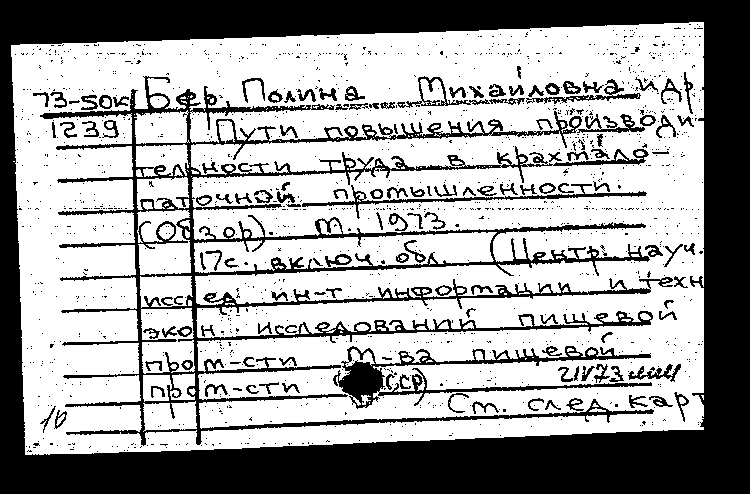 73-50к Бер, Полина Михайловна и др.
1239 Пути повышения производи-
тельности труда в крахмало-
паточной промышленности.
(Обзор). М., 1973.
17с., включ. обл. (Центр. науч.
исслед. ин-т информации и техн
экон. исследований пищевой
пром-сти М-ва пищевой
пром-сти СССР).
См. след. карт
10